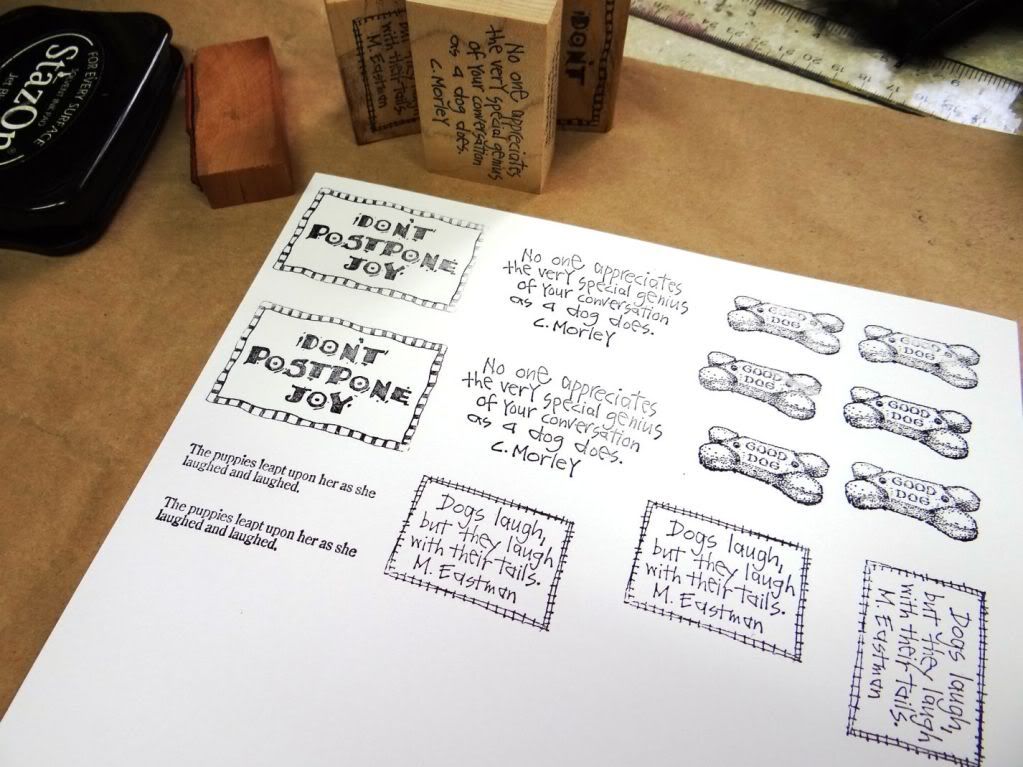 FOR EVERY SURFACE
StazOn
M. Eastman
with their tails.
No one appreciates
the very special genius
of your conversation
as a dog does.
C. Morley
DON'T
DON'T
POSTPONE
JOY
DON'T
POSTPONE
JOY
No one appreciates
the very special genius
of your conversation
as a dog does.
C. Morley
No one appreciates
the very special genius
of your conversation
as a dog does.
C. Morley
GOOD
DOG
GOOD
DOG
GOOD
DOG
GOOD
DOG
GOOD
DOG
GOOD
DOG
The puppies leapt upon her as she
laughed and laughed.
The puppies leapt upon her as she
laughed and laughed.
Dogs laugh,
but they laugh
with their tails.
M. Eastman
Dogs laugh,
but they laugh
with their tails.
M. Eastman
Dogs laugh,
but they laugh
with their tails.
M. Eastman